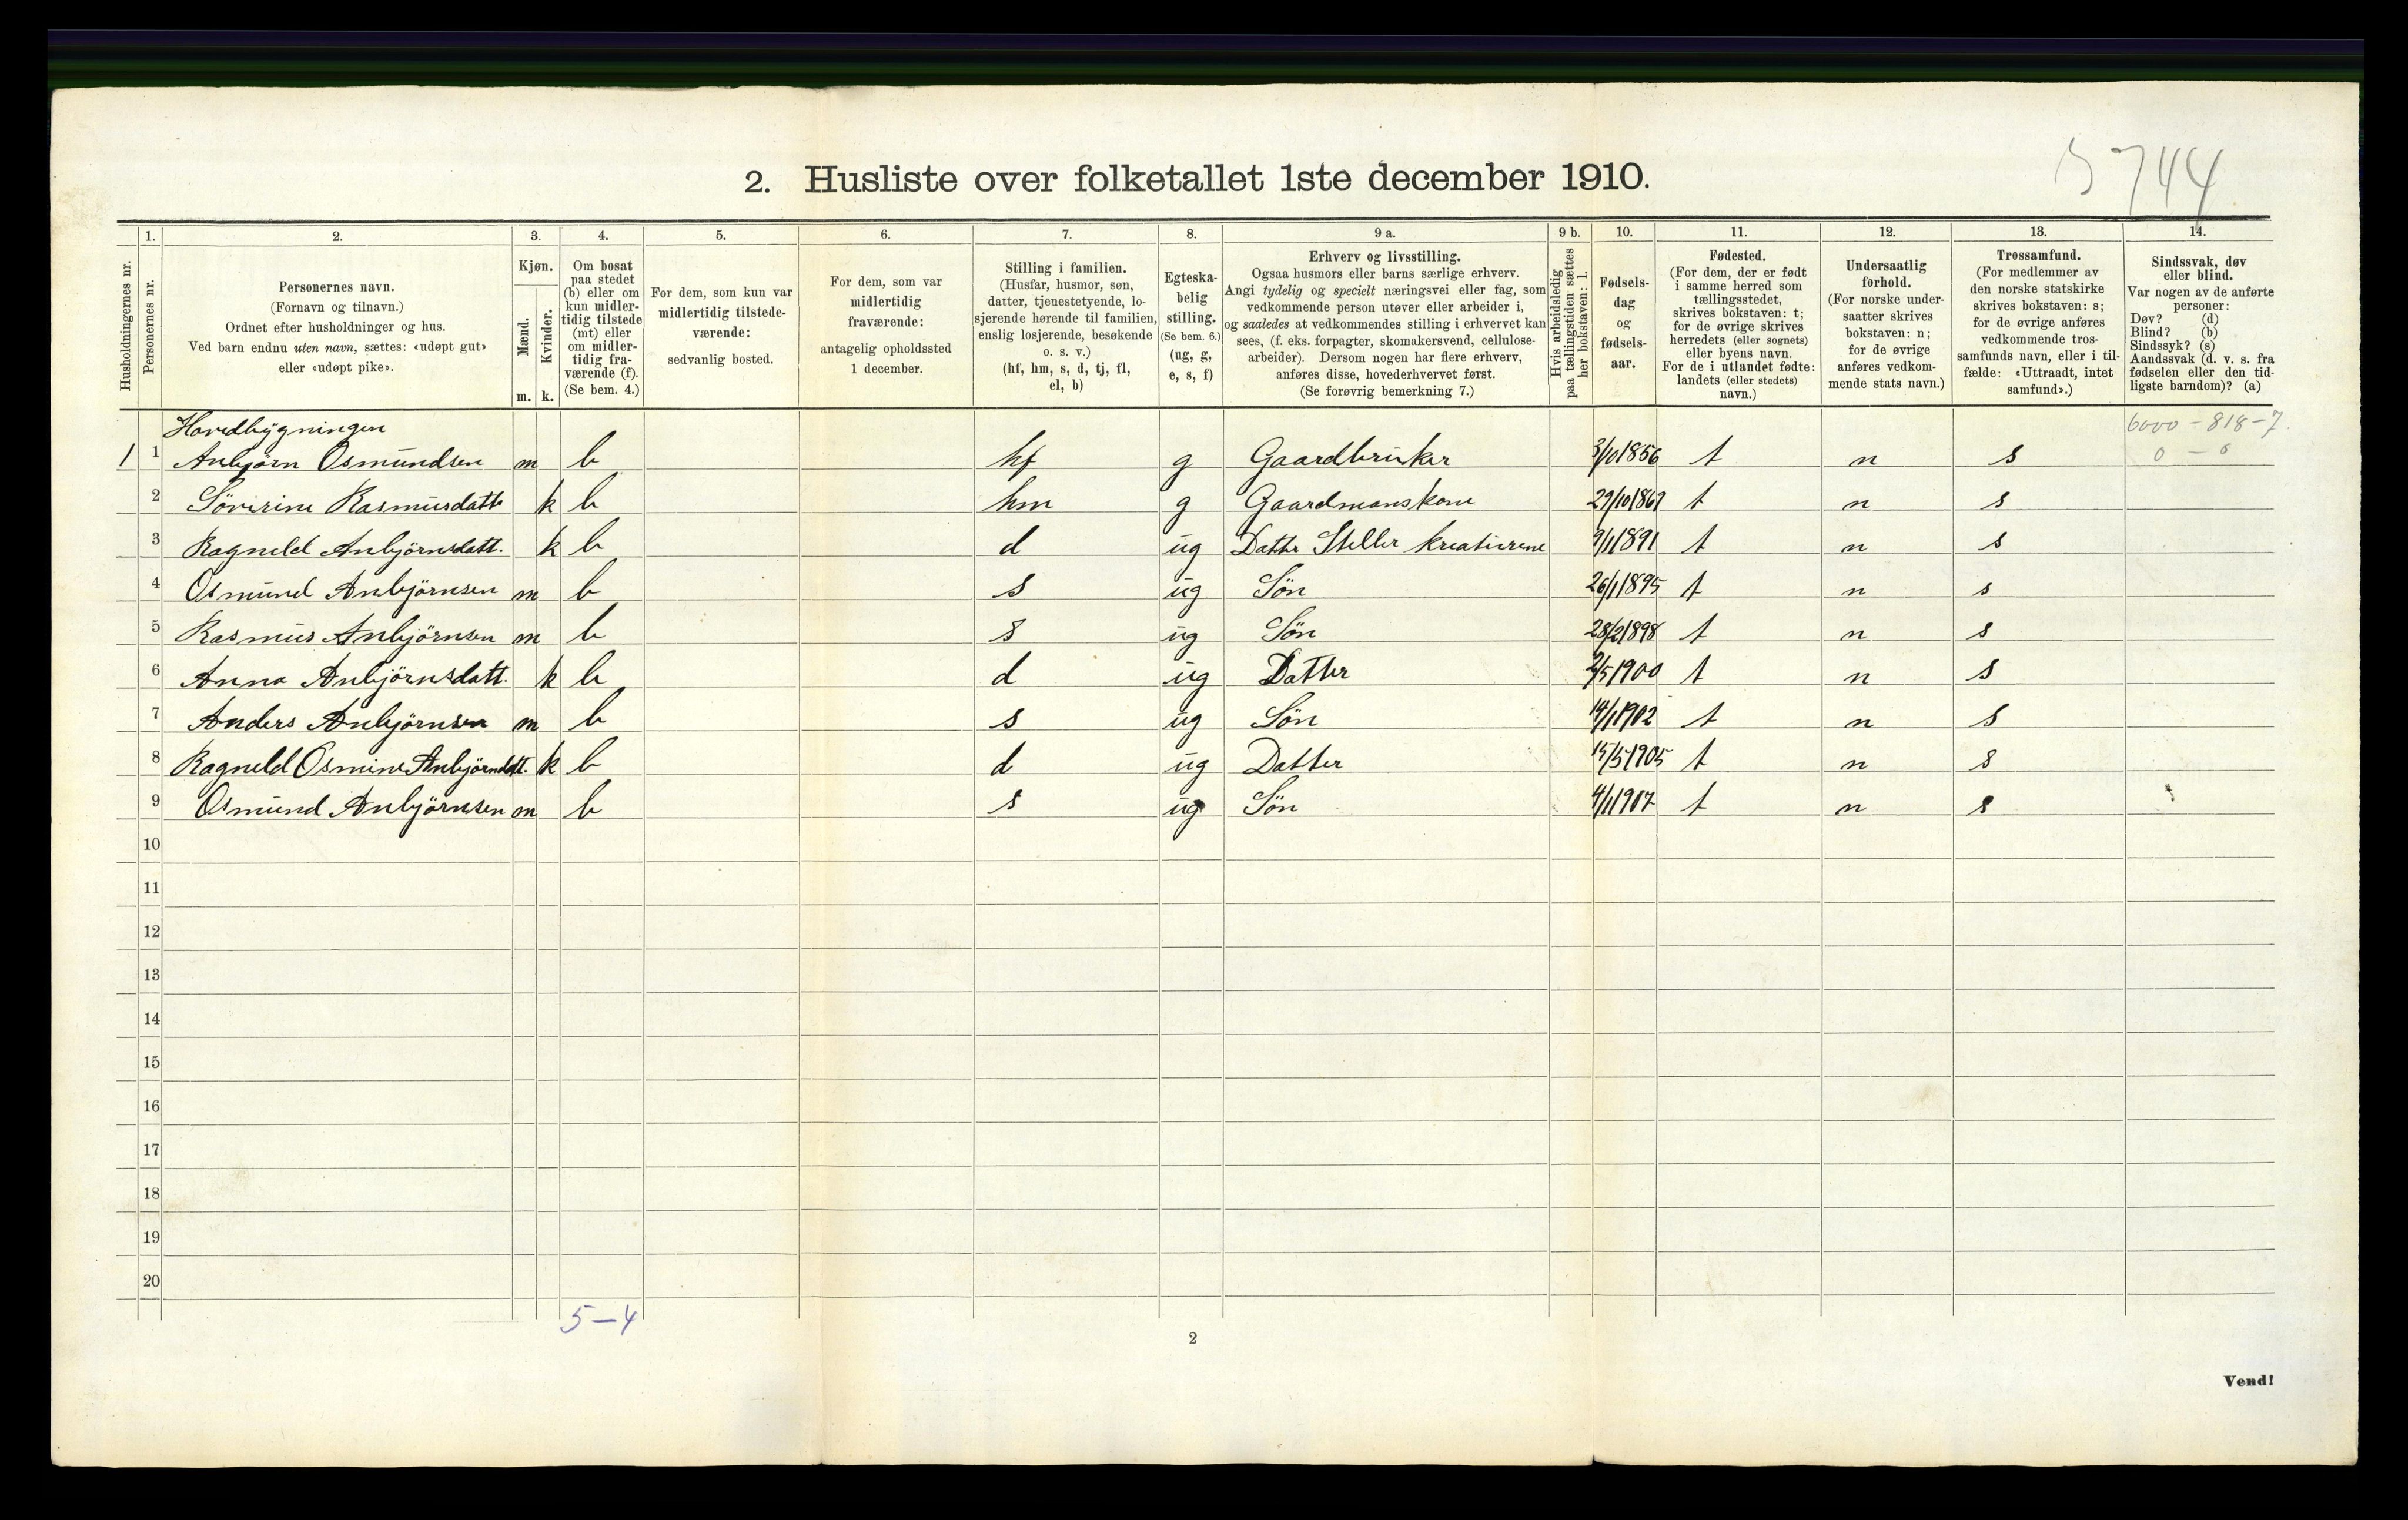 3744
2. Husliste over folketallet 1ste december 1910.
Husholdningernes nr.
1.
Personernes nr.
2.
Personernes navn.
(Fornavn og tilnavn.)
Ordnet efter husholdninger og hus.
Ved barn endnu uten navn, sættes: «udøpt gut»
eller «udøpt pike».
3.
Kjøn.
Mænd.
Kvinder.
m. k.
4.
Om bosat
paa stedet
(b) eller om
kun midler-
tidig tilstede
(mt) eller
om midler-
tidig fra-
værende (f).
(Se bem. 4.)
5.
For dem, som kun var
midlertidig tilstede-
værende:
sedvanlig bosted.
6.
For dem, som var
midlertidig
fraværende:
antagelig opholdssted
1 december.
7.
Stilling i familien.
(Husfar, husmor, søn,
datter, tjenestetyende, lo-
sjerende hørende til familien,
enslig losjerende, besøkende
o. s. v.)
(hf, hm, s, d, tj, fl,
el, b)
8.
Egteska-
belig
stilling.
(Se bem. 6.)
(ug, g,
e, s, f)
9 a.
Erhverv og livsstilling.
Ogsaa husmors eller barns særlige erhverv.
Angi tydelig og specielt næringsvei eller fag, som
vedkommende person utøver eller arbeider i,
og saaledes at vedkommendes stilling i erhvervet kan
sees, (f. eks. forpagter, skomakersvend, cellulose-
arbeider). Dersom nogen har flere erhverv,
anføres disse, hovederhvervet først.
(Se forøvrig bemerkning 7.)
9 b.
Hvis arbeidsledig
paa tællingstiden sættes
her bokstaven: l.
10.
Fødsels-
dag
og
fødsels-
aar.
11.
Fødested.
(For dem, der er født
i samme herred som
tællingsstedet,
skrives bokstaven: t;
for de øvrige skrives
herredets (eller sognets)
eller byens navn.
For de i utlandet fødte:
landets (eller stedets)
navn.)
12.
Undersaatlig
forhold.
(For norske under-
saatter skrives
bokstaven: n;
for de øvrige
anføres vedkom-
mende stats navn.)
13.
Trossamfund.
(For medlemmer av
den norske statskirke
skrives bokstaven: s;
for de øvrige anføres
vedkommende tros-
samfunds navn, eller i til-
fælde: «Uttraadt, intet
samfund».)
14.
Sindssvak, døv
eller blind.
Var nogen av de anførte
personer:
Døv? (d)
Blind? (b)
Sindssyk? (s)
Aandssvak (d. v. s. fra
fødselen eller den tid-
ligste barndom)? (a)
Hovedbygningen
6000 - 818 - 7
0 - 0
1 1 Anbjörn Osmundsen m b hf g Gaardbruker 3/10 1856 t n s
2 Söverine Rasmusdatt k b hm g Gaardmanskone t n s
3 Ragneld Anbjörnsdatt. k b d ug Datter Steller kreaturene 9/1 1891 t n s
4 Osmund Anbjörnsen m b s ug Sön 26/1 1895 t n s
5 Rasmus Anbjörnsen m b s ug Sön 28/2 1898 t n s
6 Anna Anbjörnsdatt. k b d ug Datter 2/5 1900 t n s
7 Anders Anbjörnsen m b s ug Sön 14/1 1902 t n s
8 Ragneld Osmine Anbjörnsdatt. k b d ug Datter 15/5 1905 t n s
9 Osmund Anbjörnsen m b s ug Sön 4/1 1907 t n s
10
11
12
13
14
15
16
17
18
19
20
5-4
2
Vend!